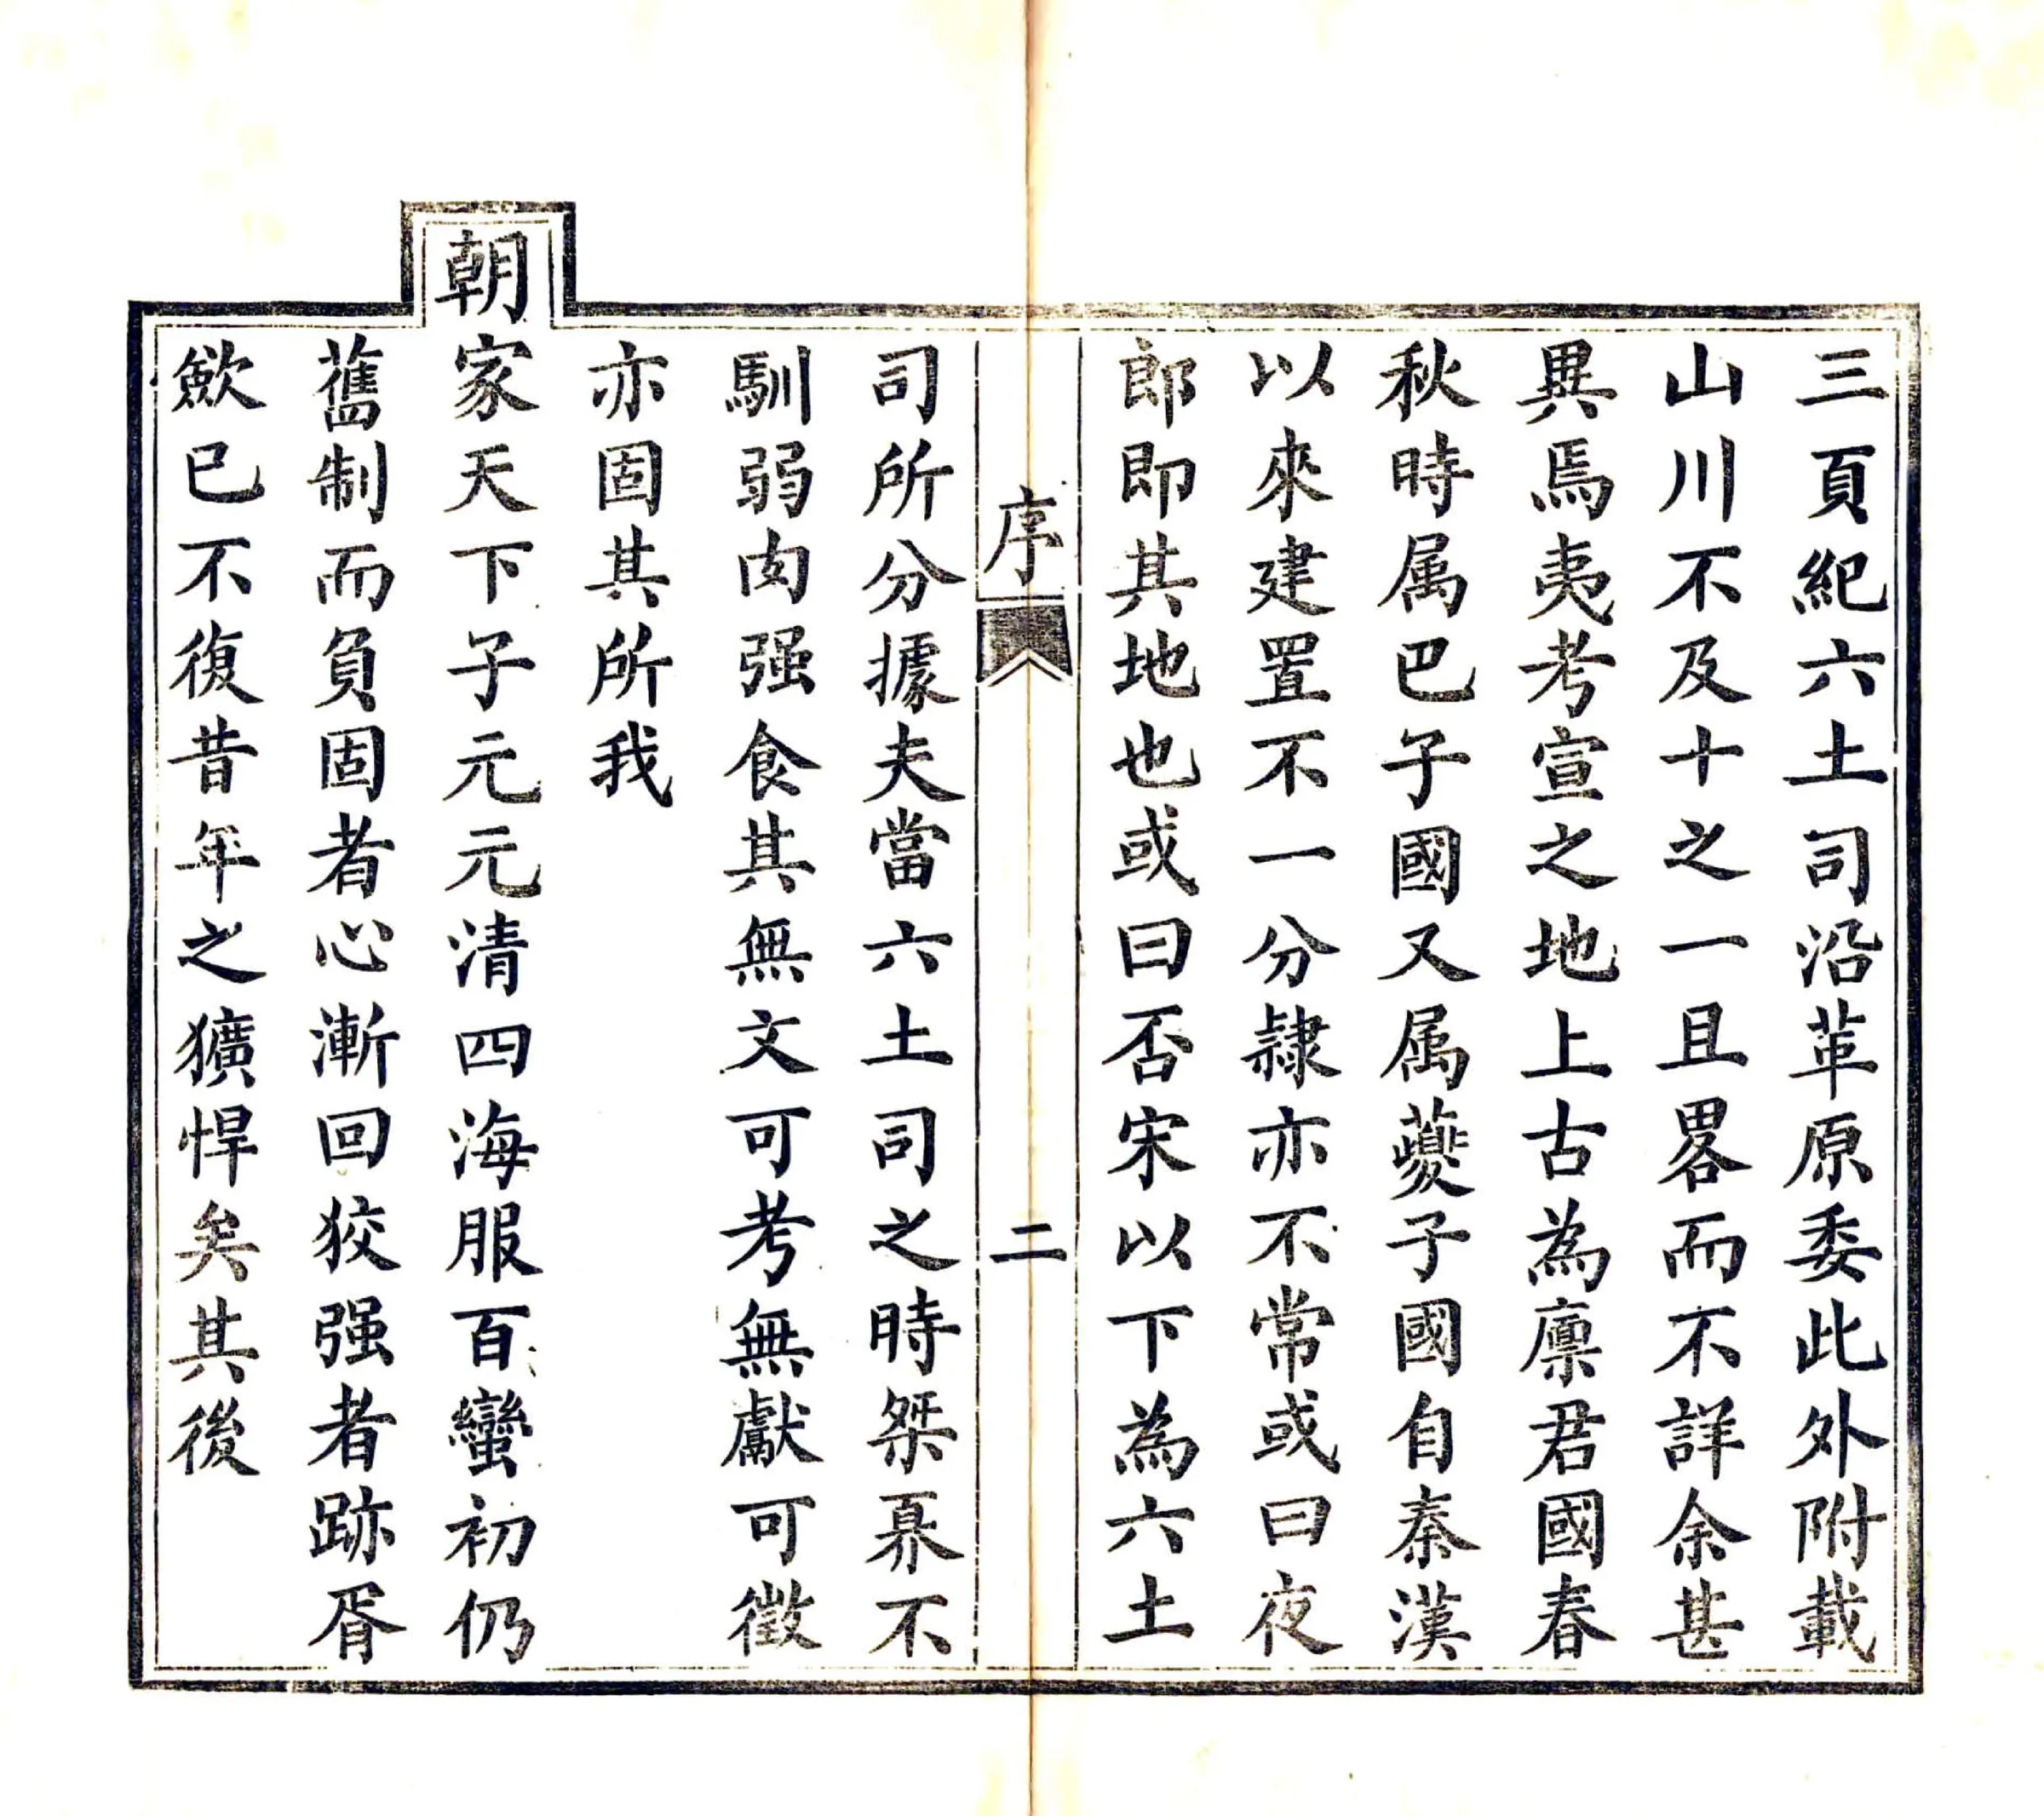 三頁紀六土司沿革原委此外附載
山川不及十之一且畧而不詳余甚
異焉夷考宣之地上古為廪君國春
秋時属巴子國又属蘷子國自秦漢
以來建置不一分隷亦不常或曰夜
郎即其地也或曰否宋以下為六土
序
二
司所分據夫當六土司之時桀夓不
馴弱肉强食其無文可考無獻可徵
亦固其所我
朝家天下子元元清四海服百蠻初仍
舊制而負固者心漸回狡强者跡胥
歛已不復昔年之獷悍矣其後